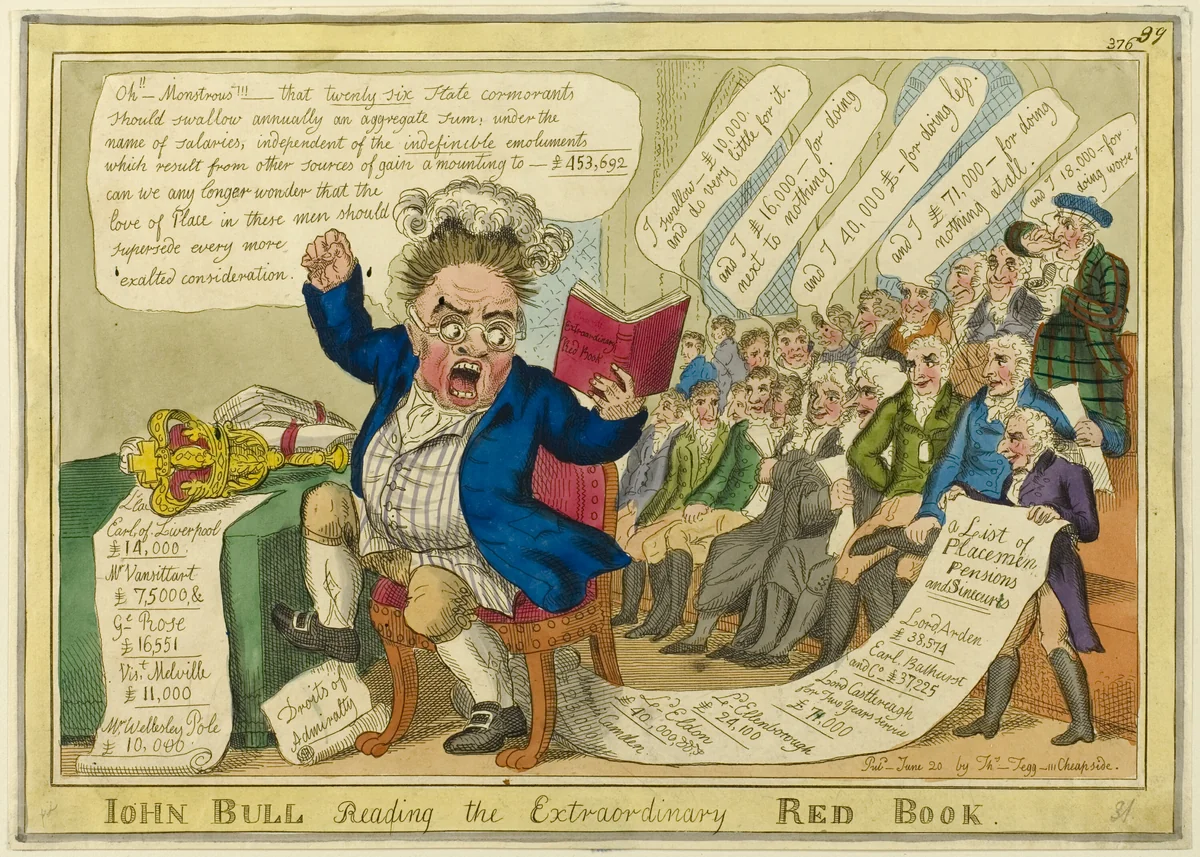 376 99
Oh!! — Monstrous!!! — that twenty six State cormorants
should swallow annually an aggregate sum, under the
name of salaries, independent of the indefinible emoluments
which result from other sources of gain amounting to — £453,692
can we any longer wonder that the
love of Place in these men should
supersede every more
exalted consideration.
I swallow £10,000.
and do very little for it.
and I £16,000 — for doing
next to nothing.
and I 40,000 £ — for doing less.
and I £71,000 — for doing
nothing at all.
and I 18,000 — for
doing worse!
Extraordinary
Red Book
Earl of Liverpool
£14,000.
Mr Vansittart
£7,5000,&
Ge Rose
£16,551
Vist Melville
£11,000
Mr Wellesley Pole
£10,000
Droits of
Admiralty
a List of
Placemen
Pensions
and Sinecures
Lord Arden
£38,574
Earl Bathurst
and Co. £37,225
Lord Castlereagh
for Two Years service
£71,000
Ld Ellenborough
£24,100
Ld Eldon
£40,000
Camden
Pubd — June 20 by Thos — Tegg — 111 Cheapside.
IOHN BULL Reading the Extraordinary RED BOOK.
31